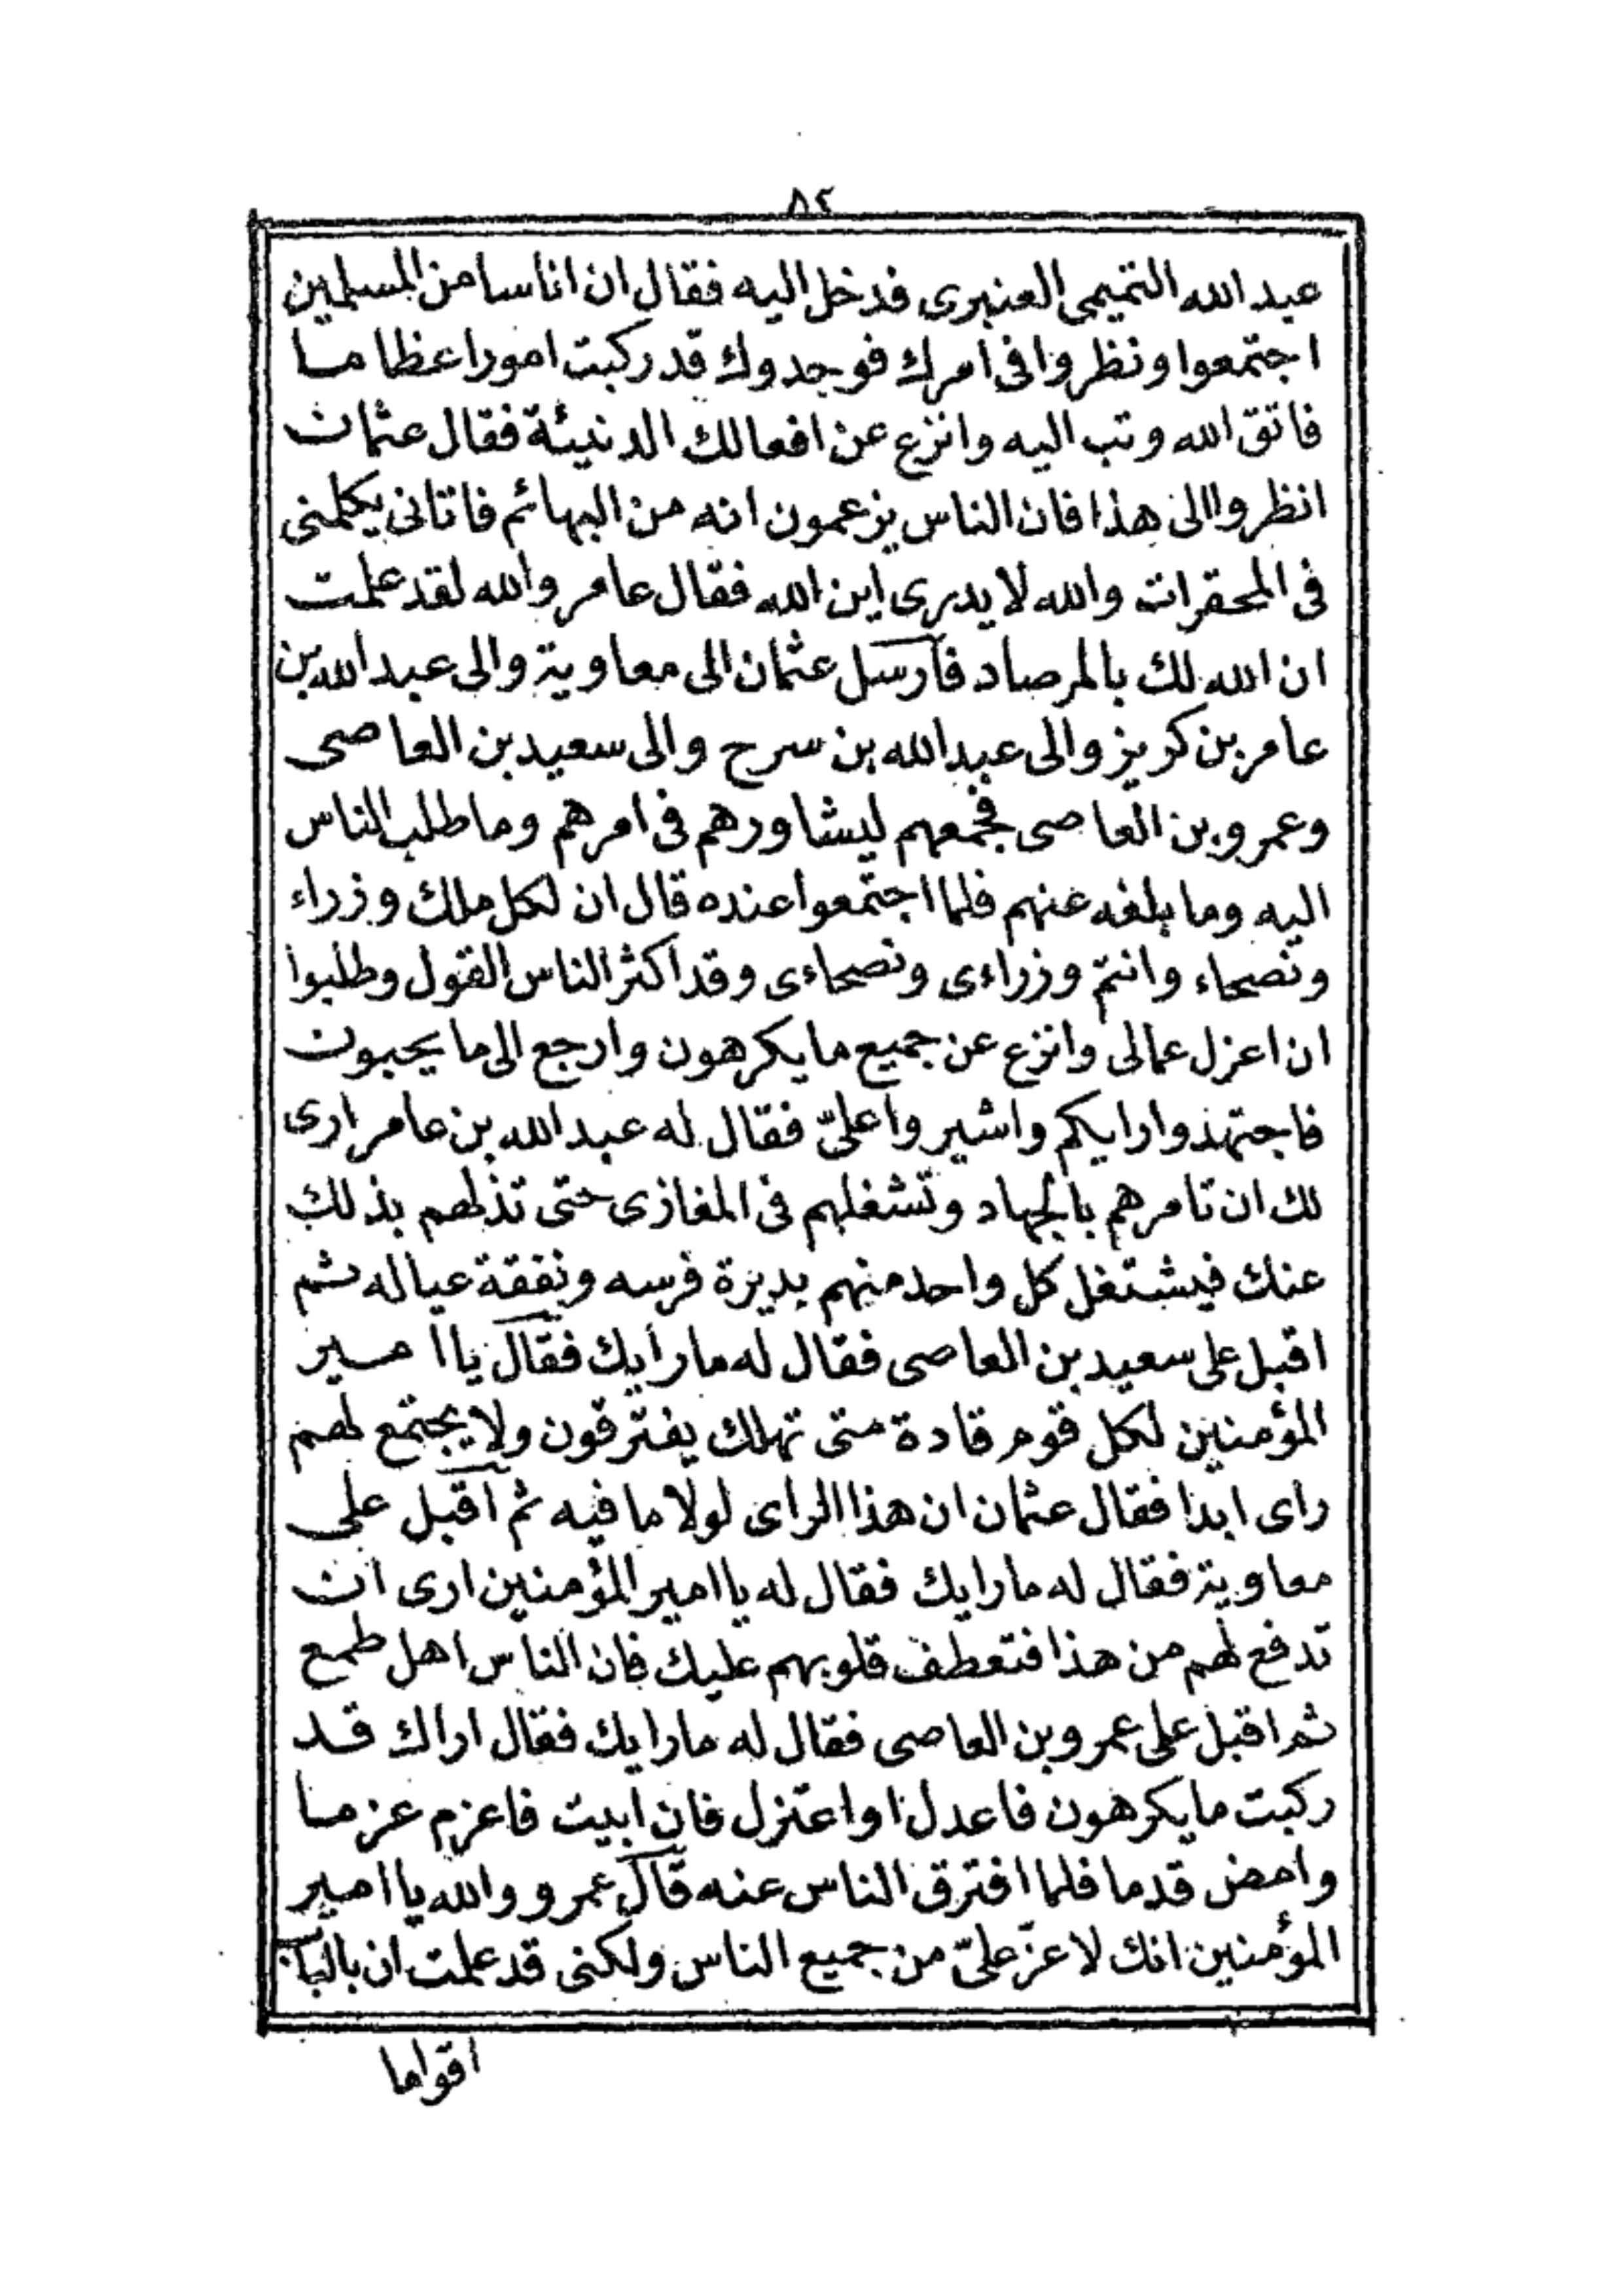 ٨٤
عبد الله التميمى العنبرى فدخل اليه فقال ان اناسا من المسلمين
اجتمعوا ونظروا فى امرك فوجدوك قد ركبت امورا عظاما
فاتق الله وتب اليه وانزع عن افعالك الدنيئة فقال عثمان
انظروا الى هذا فان الناس يزعمون انه من البهائم فاتانى يكلمنى
فى المحقرات والله لا يدرى اين الله فقال عامر والله لقد علمت
ان الله لك بالمرصاد فارسل عثمان الى معاوية والى عبد الله بن
عامر بن كريز والى عبد الله بن سرح والى سعيد بن العاصى
وعمرو بن العاصى فجمعهم ليشاورهم فى امرهم وما طلب الناس
اليه وما بلغه عنهم فلما اجتمعوا عنده قال ان لكل ملك وزراء
ونصحاء وانتم وزراءى ونصحاءى وقد اكثر الناس القول وطلبوا
ان اعزل عمالى وانزع عن جميع ما يكرهون وارجع الى ما يحبون
فاجتهدوا رايكم واشيروا علىّ فقال له عبد الله بن عامر ارى
لك ان تامرهم بالجهاد وتشغلهم فى المغازى حتى تذلهم بذلك
عنك فيشتغل كل واحد منهم بديرة فرسه ونفقة عياله ثم
اقبل على سعيد بن العاصى فقال له ما رأيك فقال يا امير
المؤمنين لكل قوم قادة متى تهلك يفترقون ولا يجتمع لهم
راى ابدا فقال عثمان ان هذا الراى لولا ما فيه ثم اقبل على
معاوية فقال له ما رايك فقال له يا امير المؤمنين ارى ان
تدفع لهم من هذا فتعطف قلوبهم عليك فان الناس اهل طمع
ثم اقبل على عمرو بن العاصى فقال له ما رايك فقال اراك قد
ركبت ما يكرهون فاعدل او اعتزل فان ابيت فاعزم عزما
وامض قدما فلما افترق الناس عنه قال عمرو والله يا امير
المؤمنين انك لا عزّ علىّ من جميع الناس ولكنى قد علمت ان بالباب
اقواما